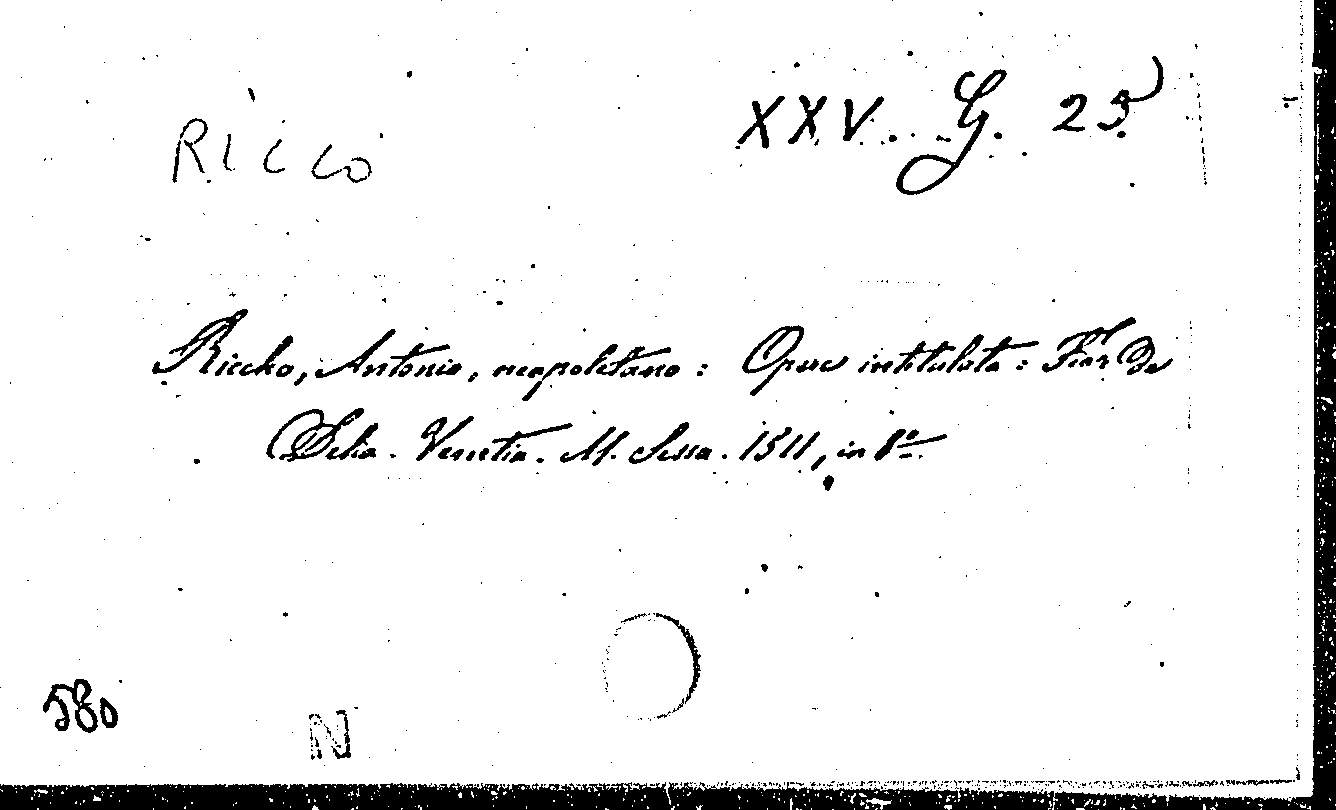 RICCO
XXV. G. 25
Riccho, Antonio, neapolitano: Opera intitulata: Fior de
Delia. Venetia. M. Sessa. 1511, in 8º.
580
N